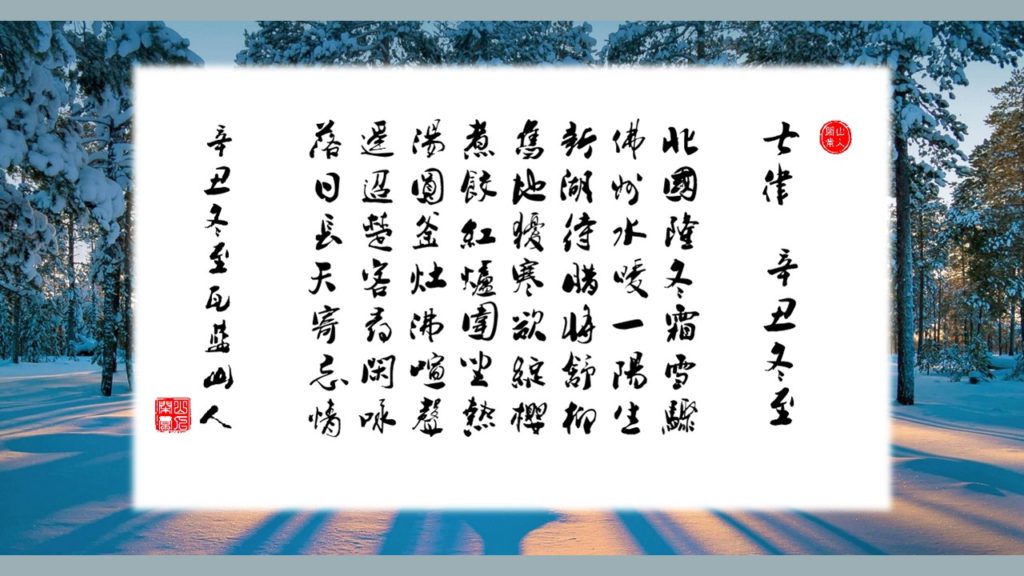 七律 辛丑冬至
北國隆冬霜雪驟
佛州水暖一陽生
新湖待腊將舒柳
舊地擾寒欲綻櫻
煮餃紅爐圍坐熱
湯圓釜灶沸喧聲
遙迢楚客尋閑咏
落日長天寄忘情
辛丑冬至瓦山人